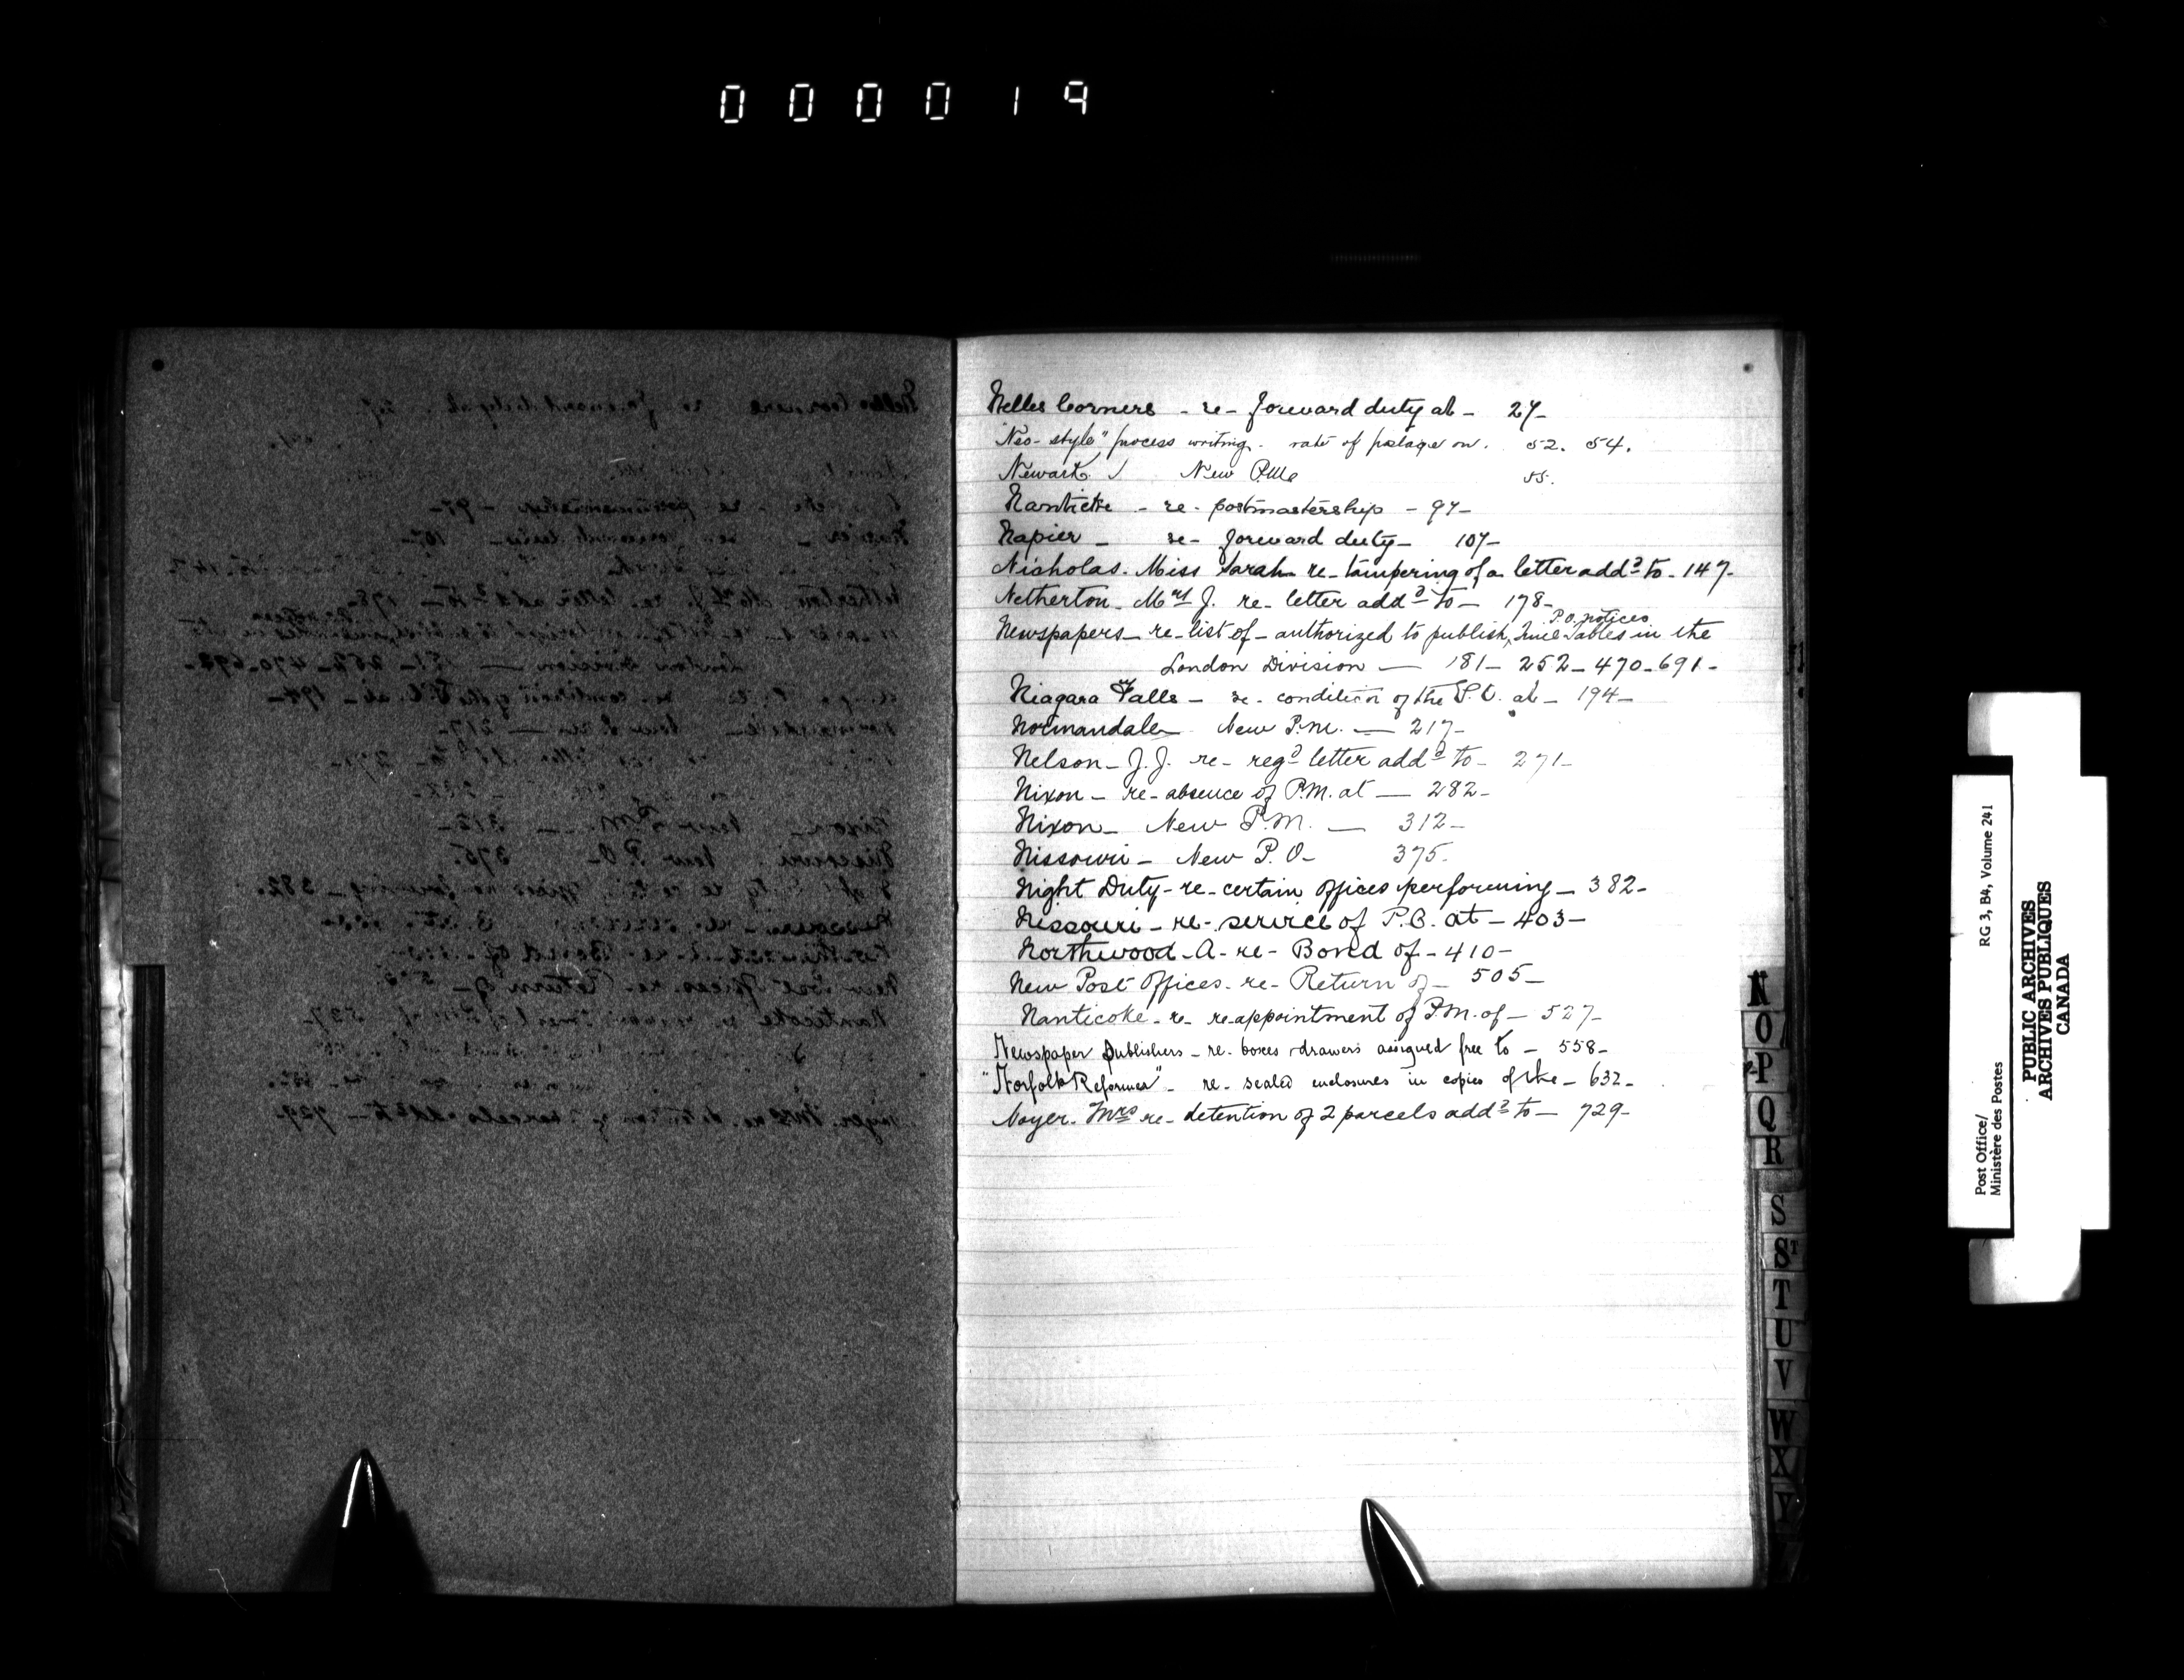 000019
Nelles Corners - re- forward duty at - 27-
"Neo-style" process writing - rate of postage on. 52. 54.
Newark / New P.M. 55.
Nanticoke - re- postmastership - 97-
Napier - re- forward duty - 107-
Nicholas. Miss Sarah re- tampering of a letter addd to - 147-
Netherton - Mrs J. re- letter addd to - 178-
P.O. notices
Newspapers - re- list of - authorized to publish, Time Tables in the
London Division — 181 - 252 - 470 - 691 -
Niagara Falls - re- condition of the P.O. at - 194 -
Normandale New P.M. — 217-
Nelson - J.J. re- regd letter addd to - 271-
Nixon - re- absence of P.M. at — 282-
Nixon - New P.M. — 312-
Nissouri - New P.O- 375-
Night Duty - re- certain offices performing - 382-
Nissouri - re- service of P.O. at - 403-
Northwood - A - re- Bond of - 410-
New Post Offices - re- Return of - 505-
Nanticoke - re- re-appointment of P.M. of - 527-
Newspaper Publishers - re- boxes drawers assigned free to - 558-
"Norfolk Reformer" - re- sealed enclosures in copies of the - 632-
Noyer. Mrs re- detention of 2 parcels addd to - 729-
N
O
P
Q
R
S
ST
T
U
V
W
X
Y
Post Office/ RG 3, B4, Volume 241
Ministère des Postes
PUBLIC ARCHIVES
ARCHIVES PUBLIQUES
CANADA